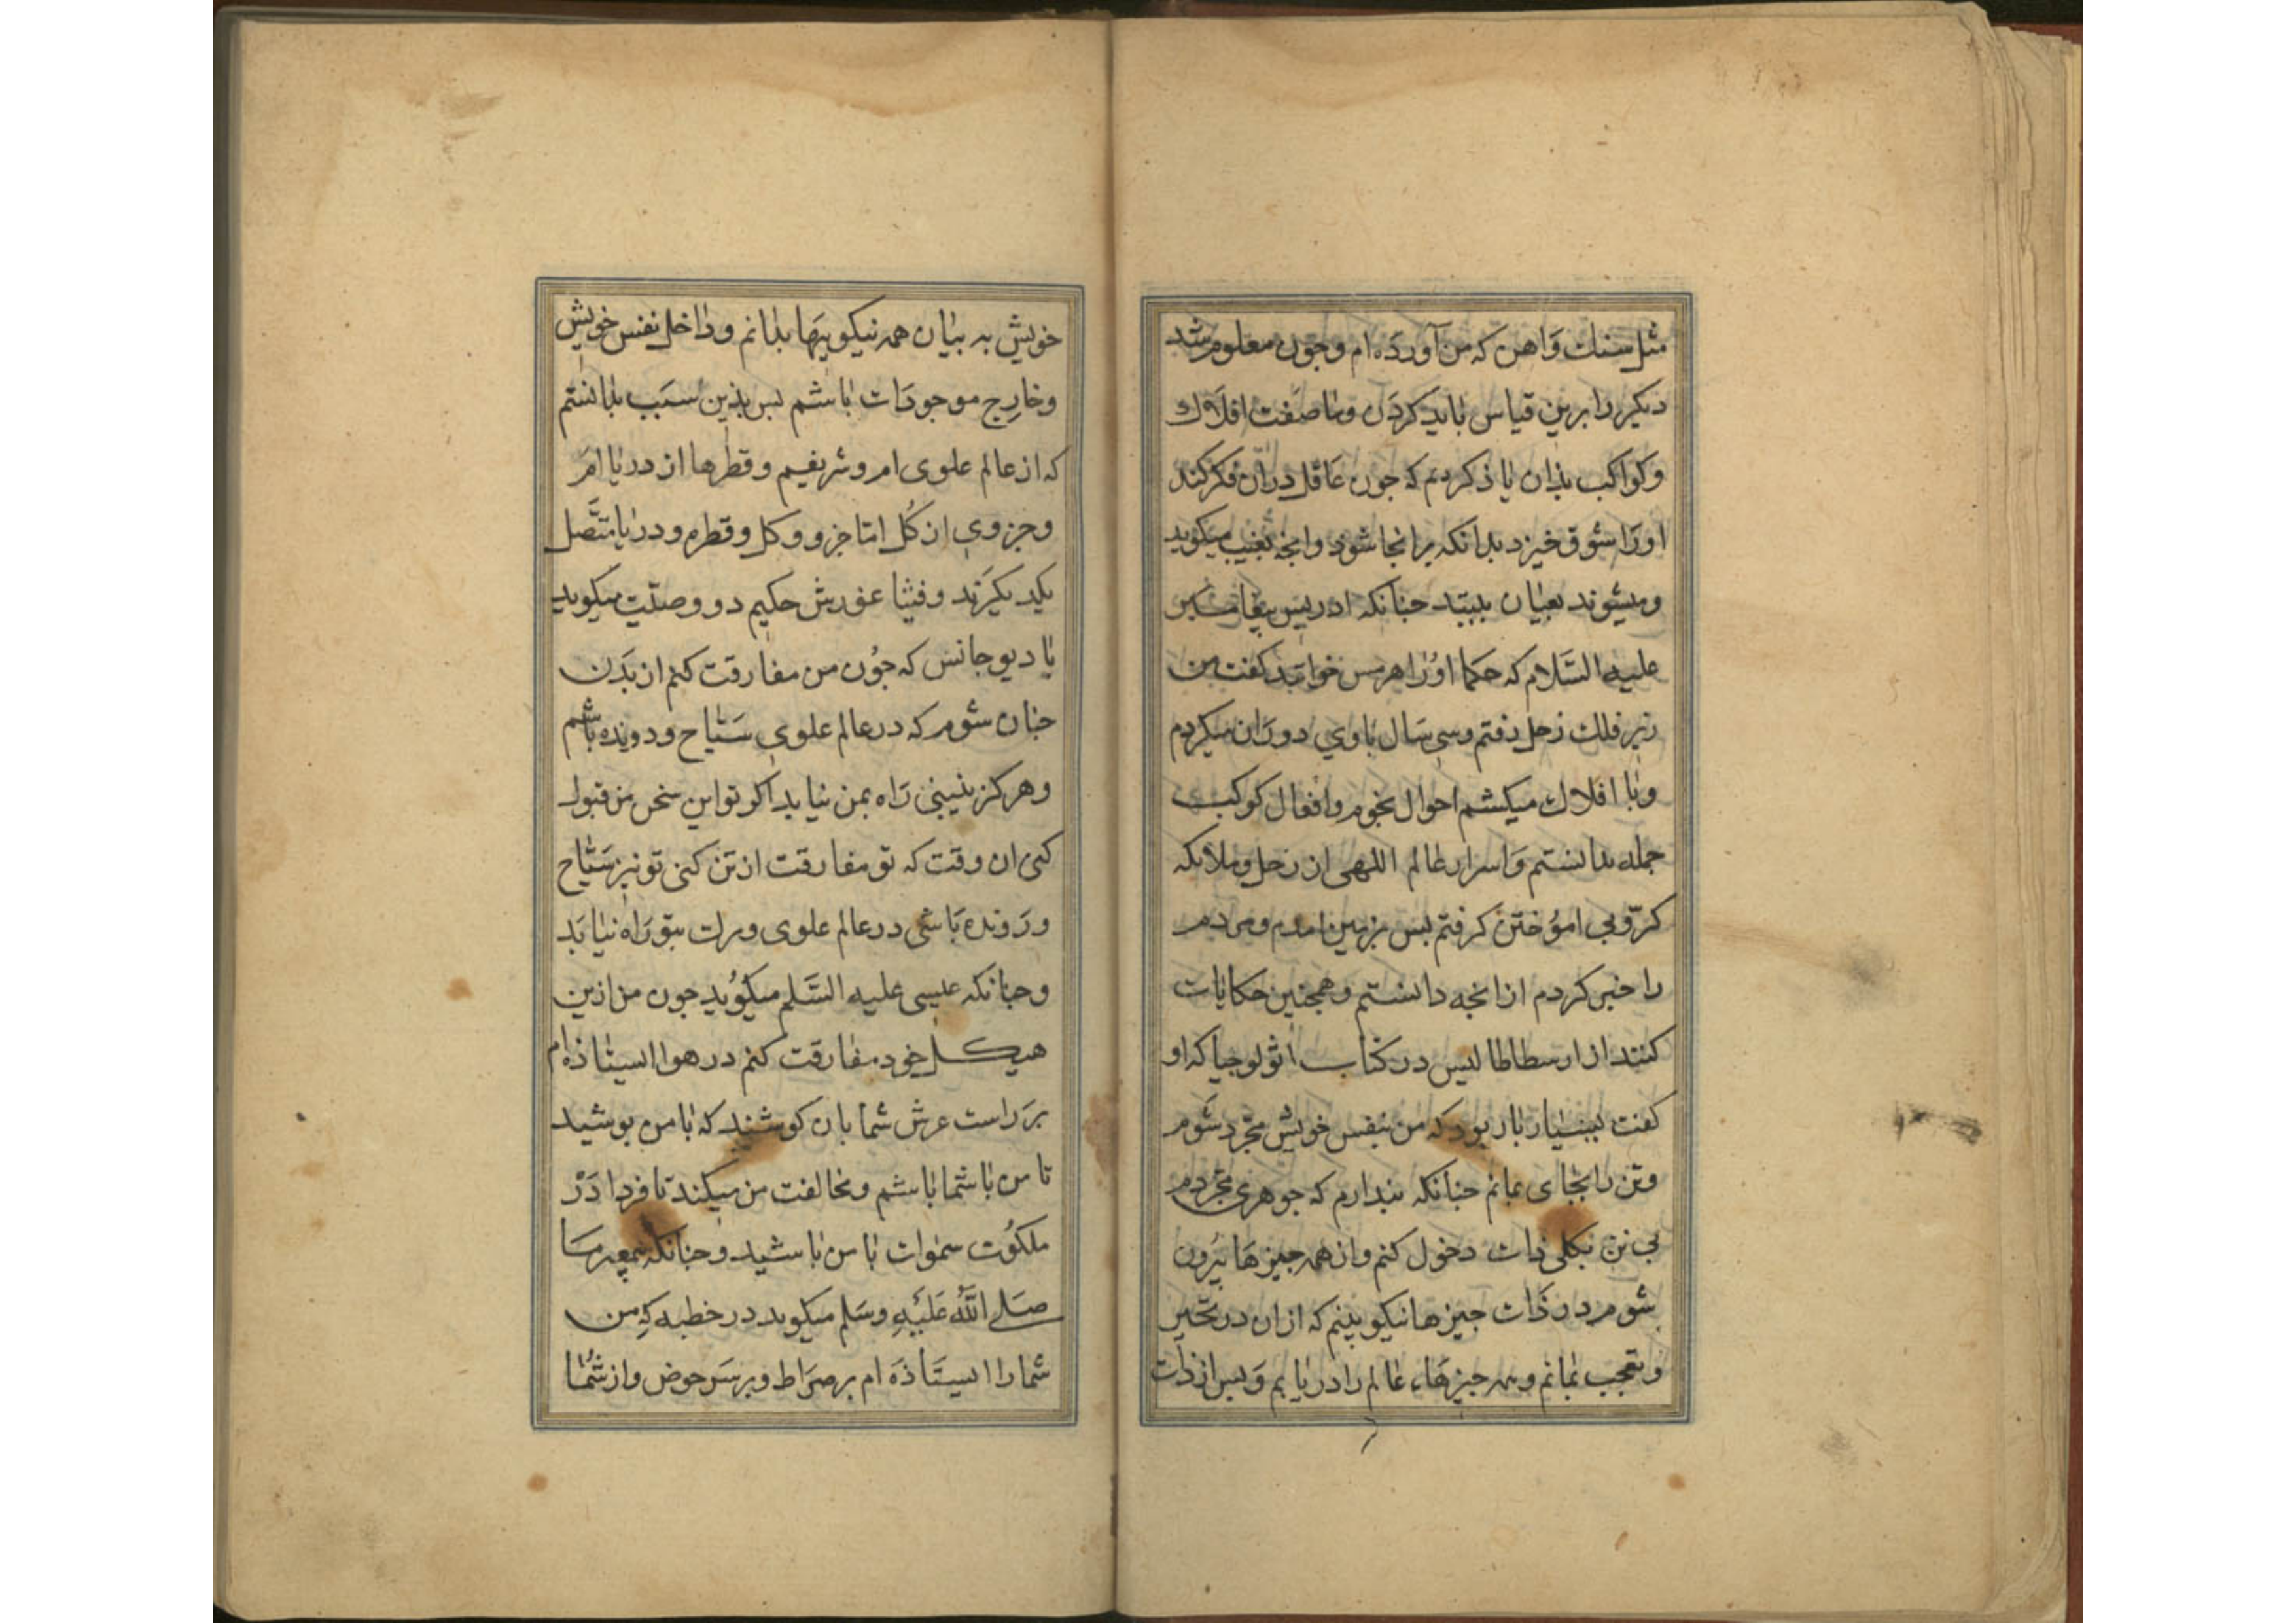 مثل سنك وَاهن كه من آورده ام وجون معلوم شد
ديكر را برين قياس بايد كردن وما صفت افلاك
وكواكب بذان ياذ كرديم كه جون عاقل دران فكر كند
اورا شوق خيزد بدانكه برانجا شود وانجه بغيب ميكويد
وميشوند بعيان ببيند جنانكه ادريس بيغامبر
عليه السَّلام كه حكما اورا هرمس خوانند كفت من
زير فلك زحل رفتم وسى سال باوي دوران ميكردم
وبا افلاك ميكشتم احوال نجوم وافعال كوكب
جمله بدانستم وَاسرار عالم اللهى از زحل وملايكه
كرّوبي اموُختن كرفتم بس بزمين امدم ومردم
را خبر كردم ازانجه دانستم وهمجنين حكايات
كنند از ارسطاطاليس در كتاب اثولوجيا كه او
كفت بسيار بار بود كه من بنفس خويش مجّرد شَوم
وتن را بجاى بمانم جنانكه بندارم كه جوهرى مجّردم
بي تن بكلى ذات دخول كنم واز همه جيزها بيرُون
شوم در ذَات جيزها نيكو بينم كه ازان در تحيّر
وتعجب بمانم وهمه جيزهَاء عالم را دريابم وَبس از ذات
خويش به بيان همه نيكوييها بدانم وداخل نفس خويش
وخارِج موجودَات باشم بس بذين سَبب بدانستم
كه از عالم علوى ام وشريفيم وقطرها از دريا ام
وجزوي از كُل امّا جزو وكل وقطره ودريا متَّصل
يكديكرَند وفيثاغورش حكيم دو وصيّت ميكويد
يا ديوجانس كه جوُن من مفارقت كنم از بَدَن
جنان شوم كه در عالم علوي سَيّاح ودونده باشم
وهركز نيستى رَاه بمن نيابد اكر تو اين سخن من قبول
كنى ان وقت كه تو مفارقت از تن كنى تو نيز سَيّاح
ورَونده بَاشى در عالم علوى ومرك بتو رَاه نيابَد
وجنانكه عيسى عليه السَّلم ميكوُيد جون من ازين
هيكل خود مفارقت كنم در هوا ايستاذه ام
بر رَاست عرش شما بان كوشند كه با من بوشيد
تا من با شما باشم ومخالفت من ميكند تا فردا دَرْ
ملكوُت سموات با من باشيد وجنانكه بيغمبر ما
صَلى اللّٰه عَلَيْهِ وسَلم ميكويد در خطبه كِه من
شما را ايستَاذه ام بر صرَاط وبر سَر حوض واز شُما